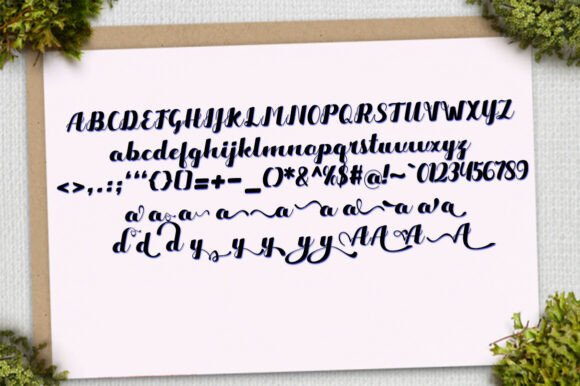 ABCDEFGHIJKLMNOPQRSTUVWXYZ
abcdefghijklmnopqrstuvwxyz
<>,.:;'"“{}[]=+-_()*&^%$#@!~`0123456789
a a a a a a a a a
d d d y y y y y A A A A